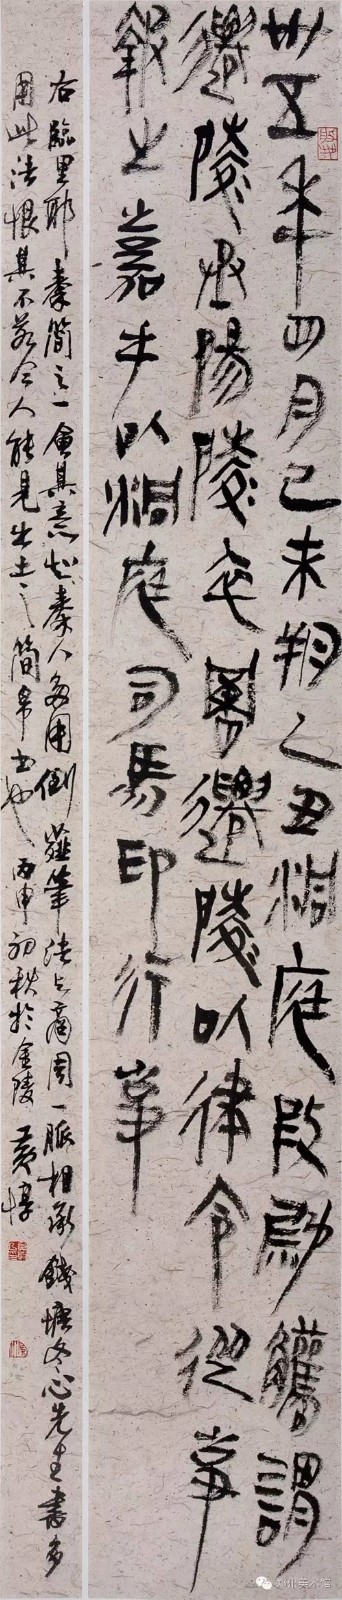 卅五年四月己未朔乙丑洞庭叚尉觿謂
遷陵丞陽陵卒署遷陵以律令從事
報之嘉手以洞庭司馬印行事
右臨里耶秦簡之一會其意知秦人多用倒薤筆法與商周一脈相承錢塘冬心先生書多
用此法恨其不若今人能見出土之簡帛書也丙申初秋於金陵黃惇